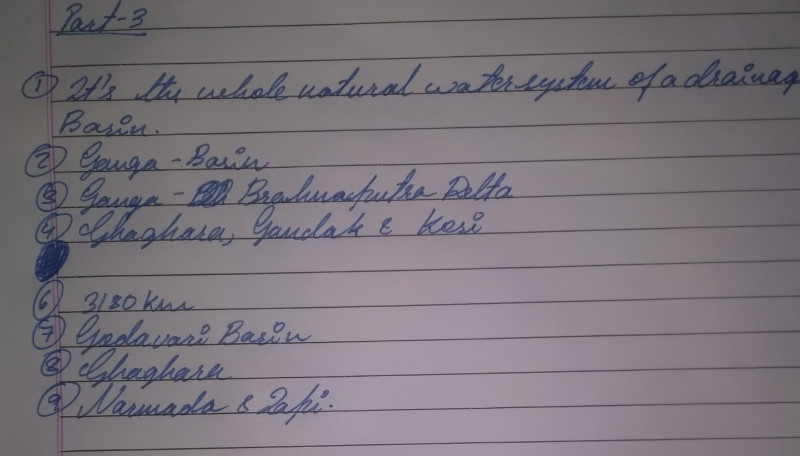 Part-3
① It's the whole natural water system of a drainag
Basin.
② Ganga - Basin
③ Ganga - Brahmaputra Delta
④ Ghaghara, Gandak & Kosi
⑥ 3180 km
⑦ Godavari Basin
⑧ Ghaghara
⑨ Narmada & Tapi.